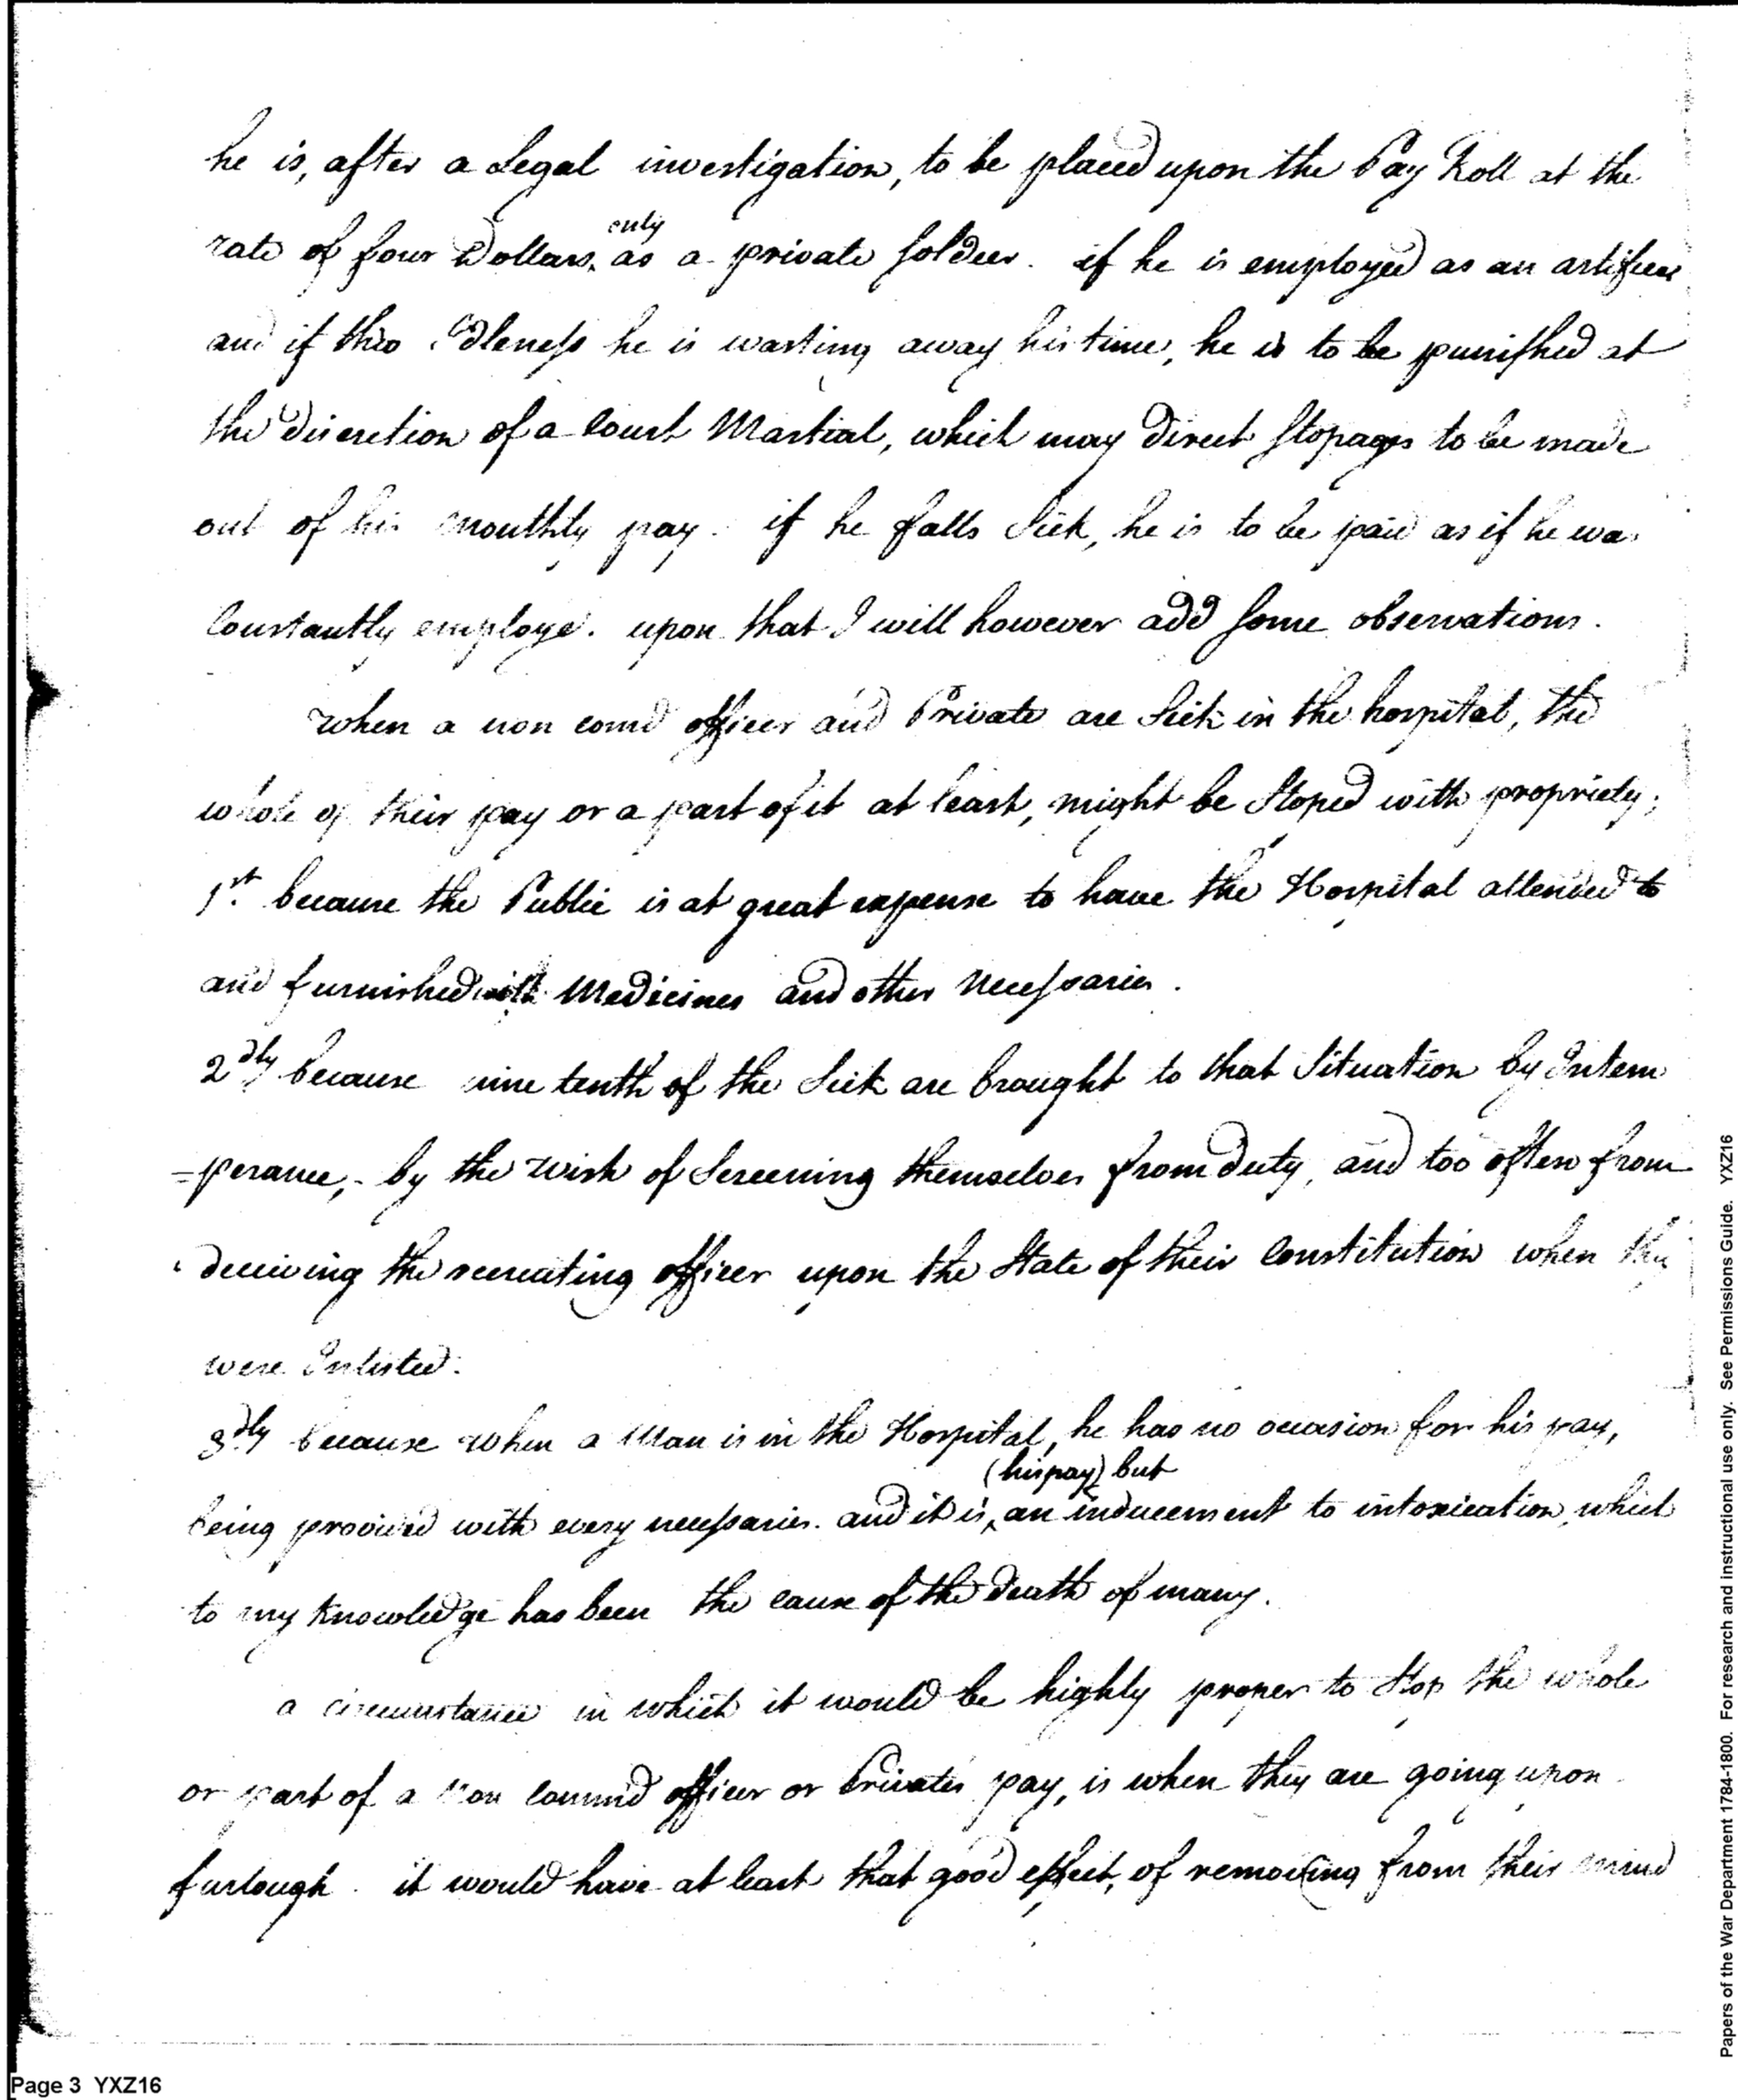 he is, after a Legal investigation, to be placed upon the Pay Roll at the
only
rate of four Dollars, as a private Soldeer. if he is employed as an artificer
and if thro Idleness he is wasting away his time, he is to be punished at
the discretion of a Court Martial, which may direct Stopages to be made
out of his monthly pay. if he falls Sick, he is to be paid as if he was
Constantly employe. upon that I will however add Some observations.
when a non comd officer and Private are Sick in the hospital, the
whole of their pay or a part of it at least, might be Stoped with propriety;
1st. because the Public is at great expense to have the Hospital attended to
and furnished with Medicines and other Necessaries.
2dly because nine tenth of the Sick are brought to that Situation by Intem
=perance,- by the wish of Screening themselves from duty, and too often from
deceiving the recruiting officer upon the State of their Constitution when they
were Inlisted.
3dly because when a Man is in the Hospital, he has no occasion for his pay,
(his pay) but
being provided with every necessaries. and it is, an inducement to intoxication, which
to my knowledge has been the cause of the death of many.
a circumstance in which it would be highly proper to Stop the whole
or part of a Non commd officer or Privates pay, is when they are going upon
furlough. it would have at least that good effect, of removing from their mind
Papers of the War Department 1784-1800. For research and instructional use only. See Permissions Guide. YXZ16
Page 3 YXZ16